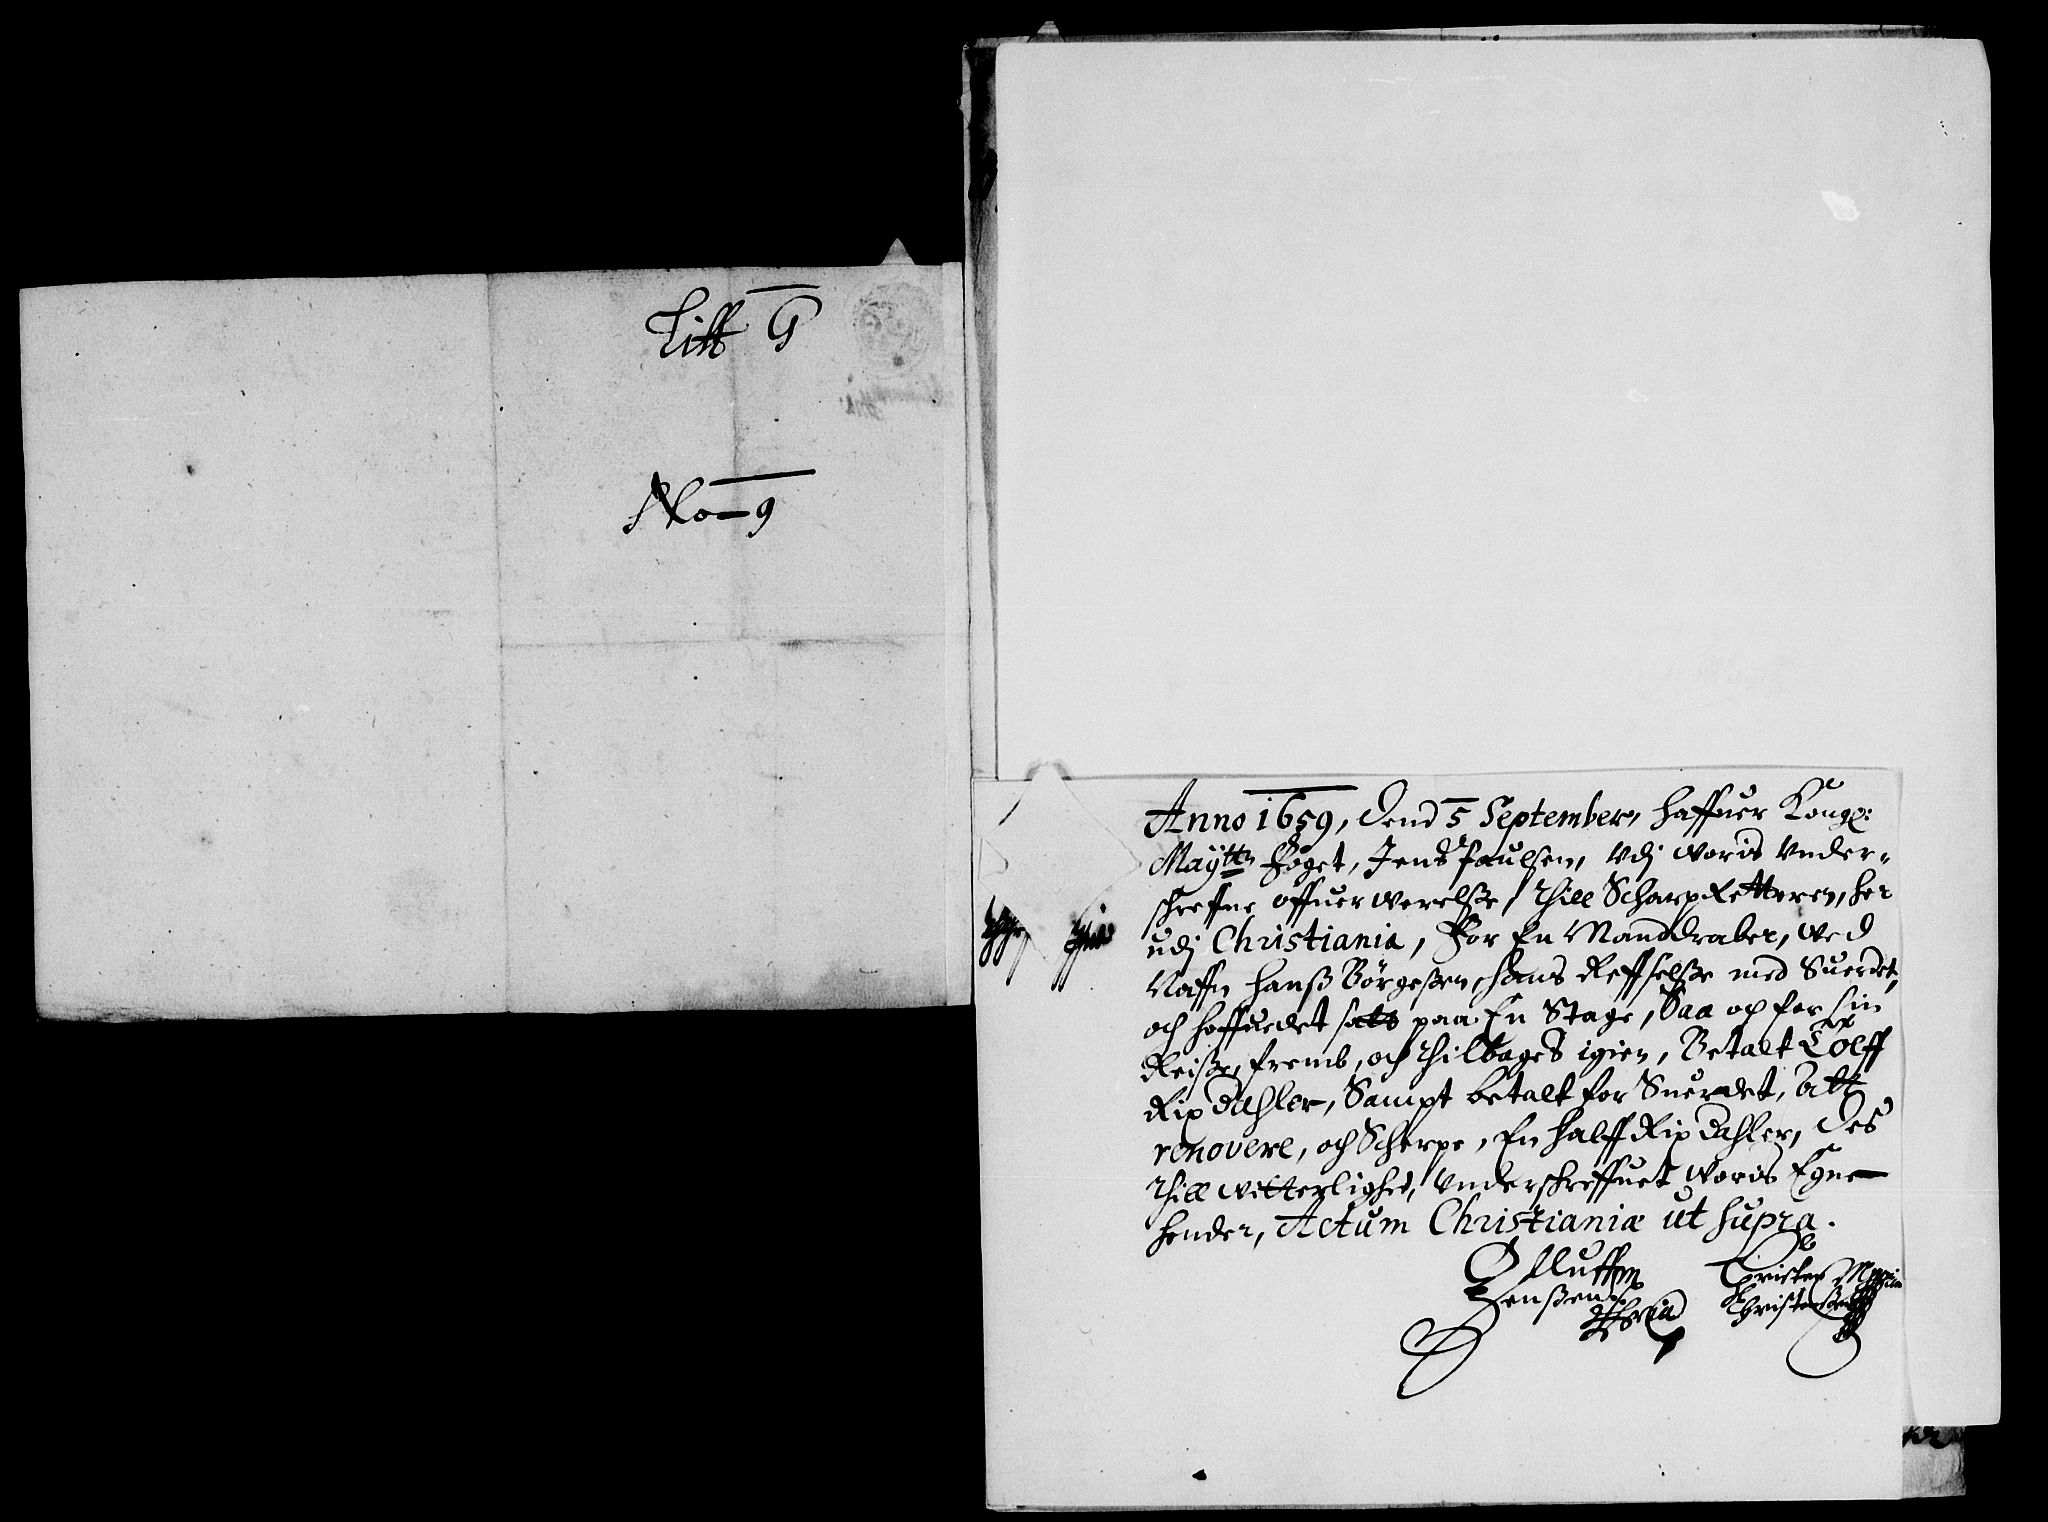 Litt G
No 9
Anno 1659, Dend 5 September, haffuer Kongl:
Maÿtts Foget, Jens Paulsen, Udj Woris Under-
schreffne offuerwerelsze, thill Scharp Retteren, her
udj Christiania, For En Manddraber, wed
Naffn Hansz Börgeszen, hans Reffselsze med Suerdet,
och hoffuedet satt paa En Stage, Saa och for sin
Reisze, fremb, och thilbages igien, Betalt Tolff
Rix dahler, Sampt betalt for Suerdet, att
renovere, och Scherpe, En halff Rix dahler, Des
thill witterlighed, Underschreffuet Woris Egne
hender, Actum Christianiæ ut supra.
Olluff Christen
Jenszen Christenszen